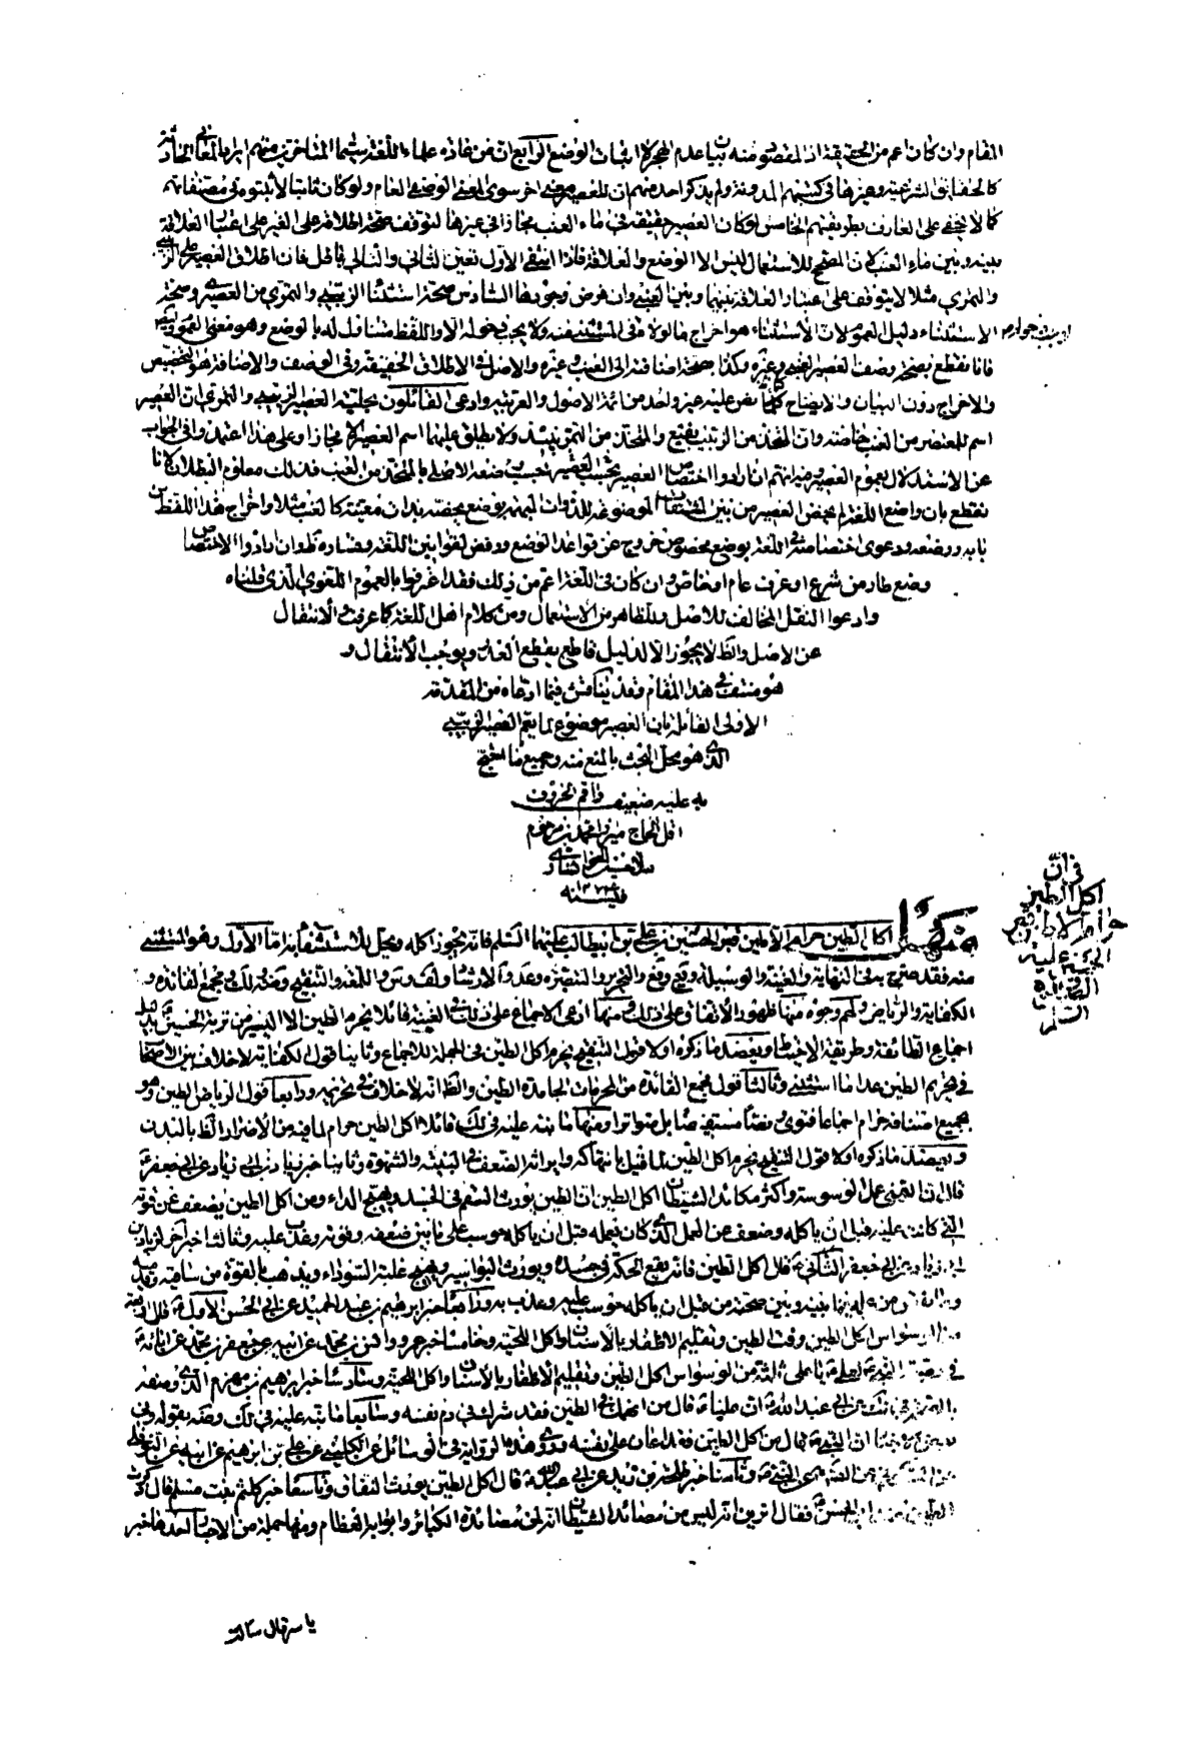 المقام وان كان اعم من الحقيقة اذ المقصود منه بيان عدم الهجر لا اثبات الوضع الرابع ان من عادة علماء اللغة سيما المتاخرين منهم ايراد المعاني الحادثة
كالحقايق الشرعية وغيرها في كتبهم المدونة ولم يذكر احد منهم ان للعصير معنى اخر سوى المعنى الوصفي العام ولو كان ثابتا لأثبتوه في مصنفاتهم
كما لا يخفى على العارف بطريقتهم الخامس لو كان العصير حقيقة في ماء العنب مجازا في غيرها لتوقف صحة اطلاقه على الغير على اعتبار العلاقة
بينه وبين ماء العنب لان المصحح للاستعمال ليس الا الوضع والعلاقة فاذا انتفى الاول تعين الثاني والتالي باطل فان اطلاق العصير على الزبيبي
والتمري مثلا لا يتوقف على اعتبار العلاقة بينهما وبين العنبي وان فرض وجودها السادس صحة استثناء الزبيبي والتمري من العصير وصحة
الاستثناء دليل العموم لان الاستثناء هو اخراج ما لولاه في المستثنى منه ولا يجب دخوله الا واللفظ متناول له بالوضع وهو معنى العموم
فانا نقطع بصحة وصف العصير بالعنبي وغيره وكذا صحة اضافته الى العنب وغيره والاصل في الاطلاق الحقيقة وفي الوصف والاضافة هو التخصيص
والاخراج دون البيان والايضاح كما نص عليه غير واحد من ائمة الاصول والعربية وادعى القائلون بحلية العصير الزبيبي والتمري ان العصير
اسم للمعتصر من العنب خاصة وان المتخذ من الزبيب نقيع والمتخذ من التمر نبيذ ولا يطلق عليهما اسم العصير الا مجازا وعلى هذا اعتمدوا في الجواب
عن الاستدلال بعموم العصير وفيه انهم ان ارادوا اختصاص العصير بحسب وضعه الاصلي بالمتخذ من العنب فذلك معلوم البطلان لانا
نقطع بان واضع اللغة لم يخص العصير من بين المشتقات الموضوعة للذوات المبهمة بوضع يخصه بذات معينة كالعنب مثلا واخراج هذا اللفظ من
بابه ووضعه ودعوى اختصاصه في اللغة بوضع مخصوص خروج عن قواعد الوضع ورفض لقوانين اللغة وان ارادوا الاختصاص
بوضع طار من شرع او عرف عام او خاص وان كان في اللغة اعم من ذلك فقد اعترفوا بالعموم اللغوي الذي قلناه
وادعوا النقل المخالف للاصل وللظاهر من الاستعمال ومن كلام اهل اللغة كما عرفت والانتقال
عن الاصل والظ لا يجوز الا لدليل قاطع يقطع العذر ويوجب الانتقال و
هو منتف في هذا المقام وقد يناقش فيما ادعاه من المقدمة
الاولى القائلة بان العصير موضوع لما يعم العصير الزبيبي
الذي هو محل البحث بالمنع منه وجميع ما احتج
به عليه ضعيف راقم الحروف
اقل الحاج ميرزا محمد بن مرحوم
سنه
منهل اكل الطين حرام الا طين قبر الحسين بن علي بن ابيطالب عليهما السلام فانه يجوز اكله ويحل للاستشفاء به اما الاول وهو المستثنى
منه فقد صرح به في النهاية والغنية والوسيلة و يع و فع والتحرير والتبصرة وعد والارشاد ولف و س واللمعة والتنقيح وضة ولك ومجمع الفائدة و
الكفاية والرياض ولهم وجوه منها ظهور الاتفاق على ذلك ومنها دعوى الاجماع على ذلك في الغنية قائلا يحرم الطين الا اليسير من تربة الحسين ع بدليل
اجماع الطائفة وطريقة الاحتياط ويعضد ما ذكره اولا قول التنقيح يحرم اكل الطين في الجملة للاجماع وثانيا قول الكفاية لا خلاف بين الاصحاب
في تحريم الطين عدا ما استثنى وثالثا قول مجمع الفائدة من المحرمات الجامدة الطين والظ انه لا خلاف في تحريمه ورابعا قول الرياض الطين وهو
بجميع اصنافه حرام اجماعا فتوى ونصا مستفيضا بل متواترا ومنها ما نبه عليه في لك قائلا اكل الطين حرام لما فيه من الاضرار الظ بالبدن
ويعضد ما ذكره اولا قول التنقيح يحرم اكل الطين لما قيل بانهاكه وايراثه الضعف في البنية والشهوة وثانيا خبر زياد بن ابي زياد عن ابي جعفر ع
قال ان التمني عمل الوسوسة واكثر مكائد الشيطان اكل الطين ان الطين يورث السقم في الجسد ويهيج الداء ومن اكل الطين فضعف عن قوته
التي كانت عليه قبل ان ياكله وضعف عن العمل الذي كان يعمله قبل ان ياكله حوسب على ما بين ضعفه وقوته وعذب عليه وثالثا خبر اخر لزياد بن
ابي زياد عن ابي جعفر قال اكل الطين فانه يقع الحكة في جسده ويورث البواسير ويهيج عليه السوداء ويذهب بالقوة من ساقيه وقدميه
وما نقص من عمله فيما بينه وبين صحته من قبل ان ياكله حوسب عليه وعذب به ورابعا خبر ابراهيم بن عبد الحميد عن ابي الحسن الاول ع قال اربعة
من الوسواس اكل الطين وفت الطين وتقليم الاظفار بالاسنان واكل اللحية وخامسا خبر
في وصية النبي لعلي ع يا علي ثلثة من الوسواس اكل الطين وتقليم الاظفار بالاسنان واكل اللحية وسادسا خبر ابراهيم بن مهزم الذي وصفه
عن ابي عبد الله ع ان عليا ع قال من انهمك في الطين فقد شرك في دم نفسه وسابعا ما نبه عليه في لك وضه بقوله وفي
قال من اكل الطين فقد اعان على نفسه وهذه الرواية في الوسائل عن الكليني عن علي بن ابراهيم عن ابيه عن النوفلي
وثامنا خبر طلحة بن زيد عن ابي عبد الله ع قال اكل الطين يورث النفاق وتاسعا خبر كلثم بنت مسلم قال ذكرت
الطين عند ابي الحسن فقال اترين انه ليس من مصائد الشيطان انه لمن مصائده الكبار وابوابه العظام ومنها جملة من الاخبار احدها خبر
في ان
اكل الطين
حرام الا طين قبر
الحسين عليه
السلام
ياسر قال سالت